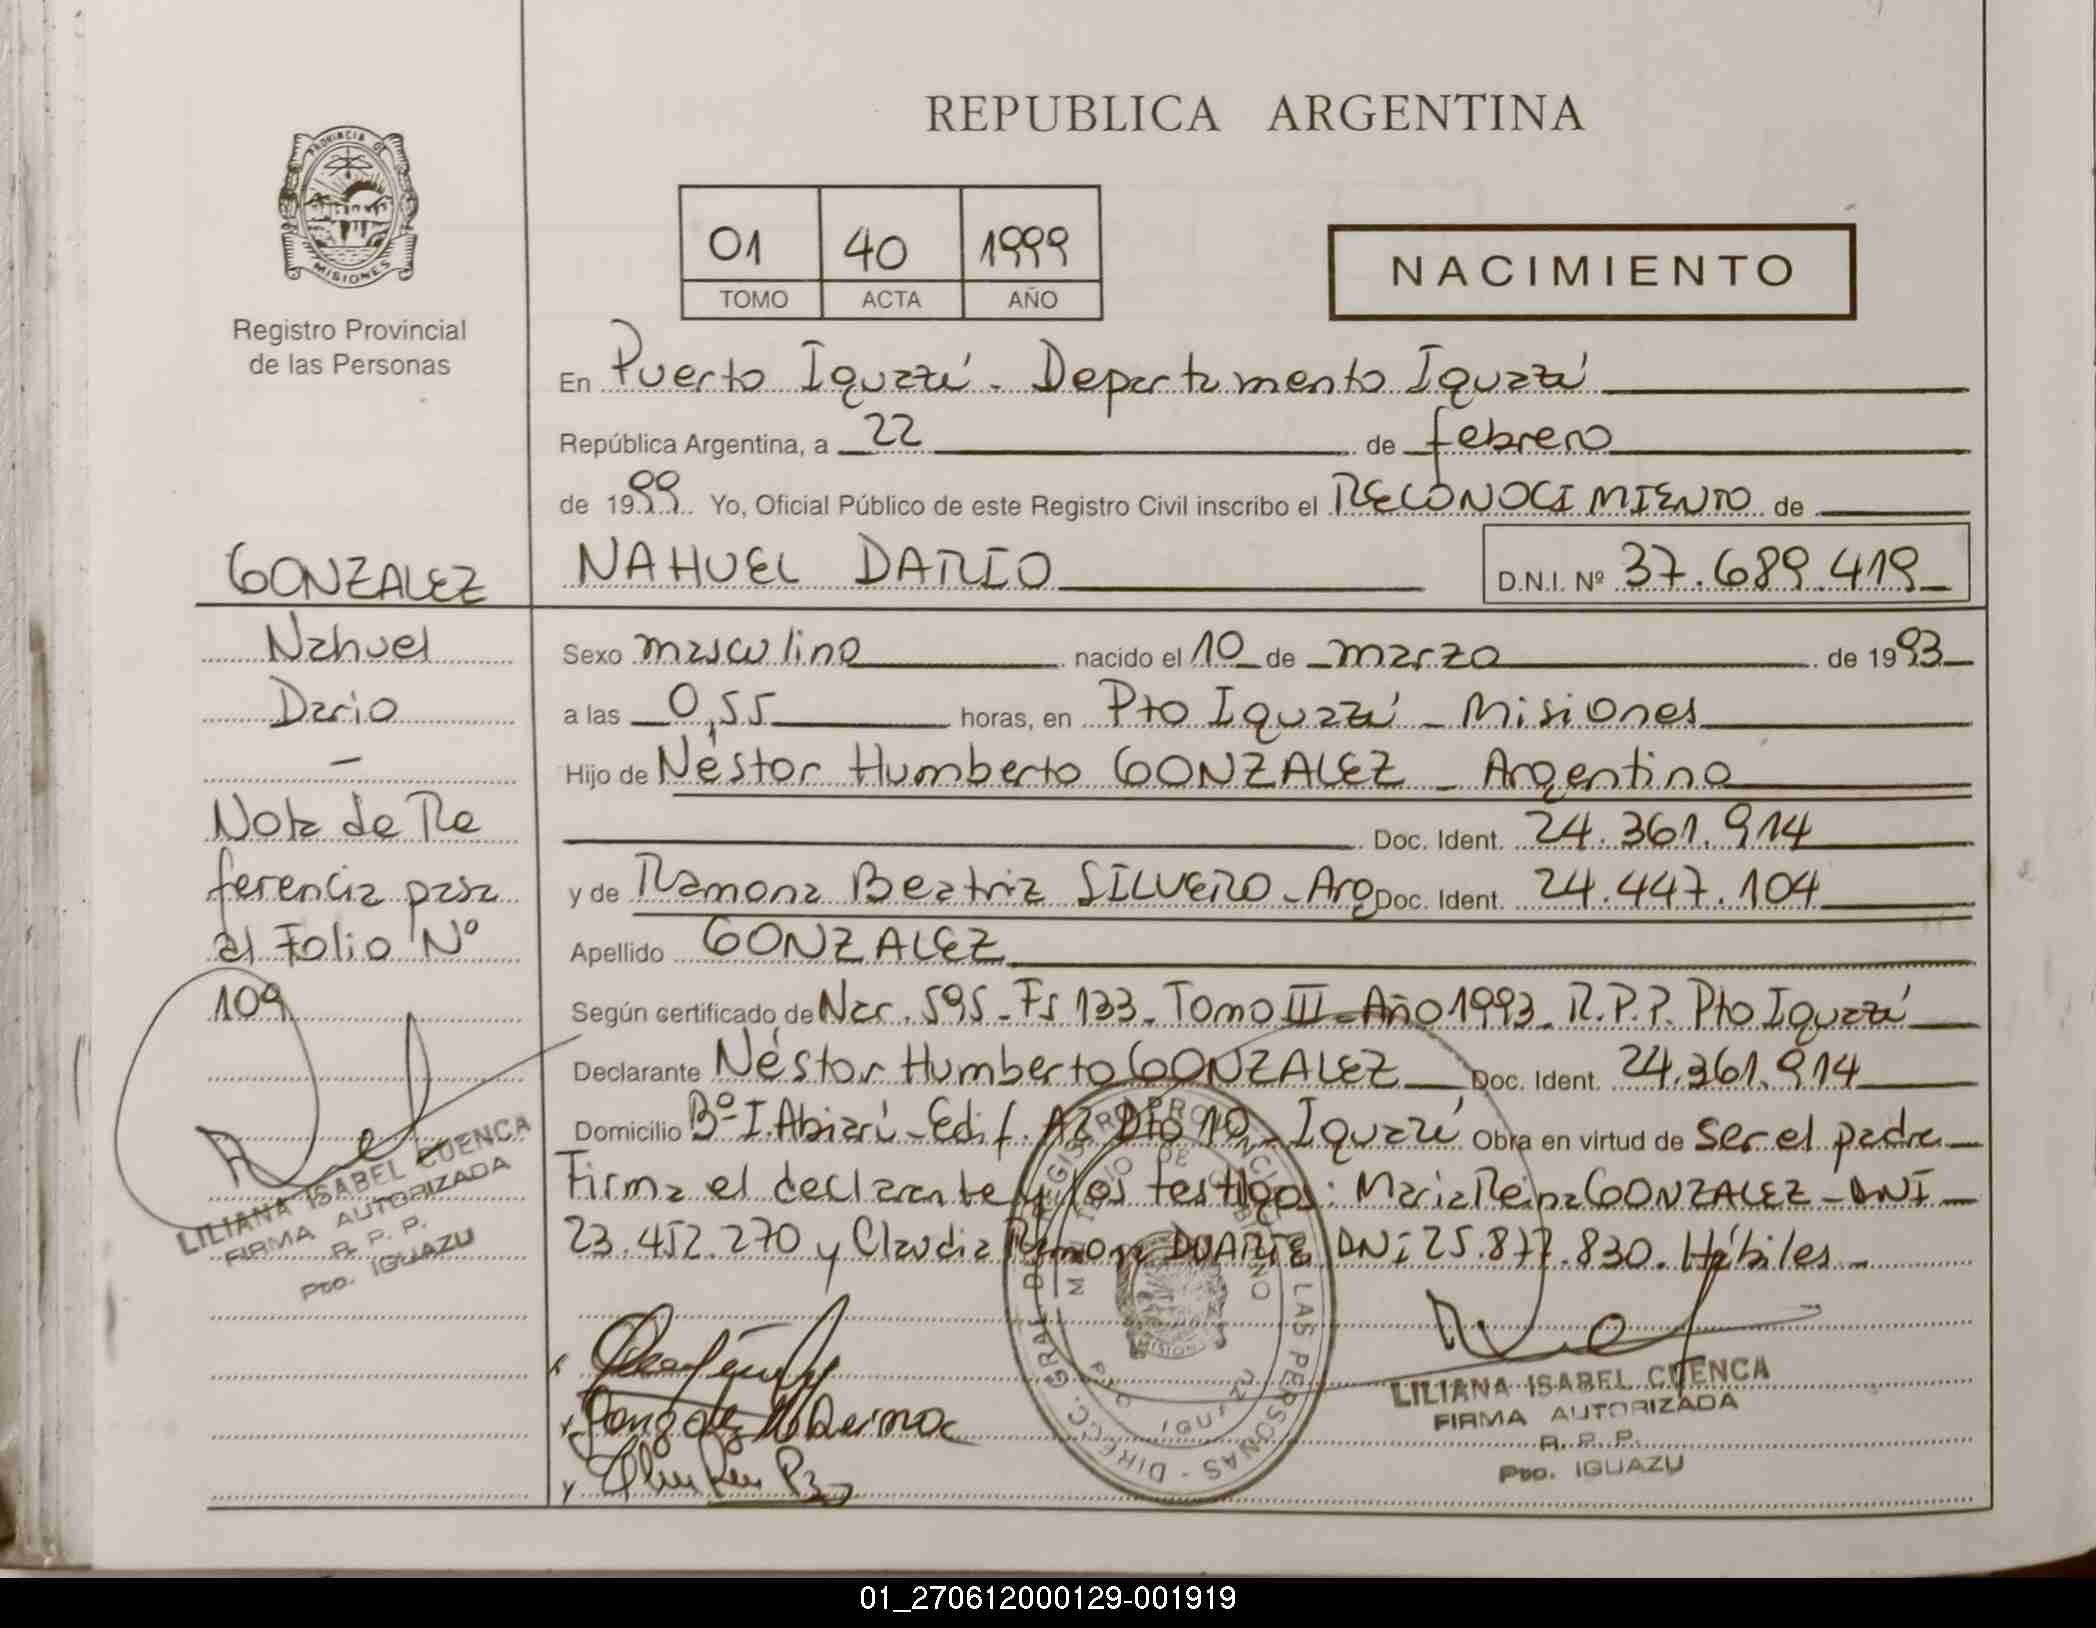 REPUBLICA ARGENTINA
PROVINCIA DE
MISIONES
Registro Provincial
de las Personas
01 40 1999
TOMO ACTA AÑO
NACIMIENTO
En Puerto Iguazú - Departamento Iguazú
República Argentina, a 22 de febrero
de 1999 Yo, Oficial Público de este Registro Civil inscribo el RECONOCIMIENTO de
NAHUEL DARIO D.N.I. Nº 37.689.419
GONZALEZ
Nahuel
Dario
—
Nota de Re
ferencia pasa
al Folio Nº
109
LILIANA ISABEL CUENCA
FIRMA AUTORIZADA
R. P. P.
Pto. IGUAZU
Sexo masculino nacido el 10 de marzo de 1993
a las 0,55 horas, en Pto Iguazú - Misiones
Hijo de Néstor Humberto GONZALEZ - Argentino
Doc. Ident. 24.361.914
y de Ramona Beatriz SILVERO - Arg Doc. Ident. 24.447.104
Apellido GONZALEZ
Según certificado de Nac. 595 - Fs 133 - Tomo III - Año 1993 - R.P.P. Pto Iguazú
Declarante Néstor Humberto GONZALEZ Doc. Ident. 24.361.914
Domicilio Bº I. Abiarú - Edif. Dto 10 - Iguazú Obra en virtud de ser el padre
Firma el declarante y los testigos: Maria Reina GONZALEZ - DNI
23.452.270 y Claudia Ramona DUARTE DNI 25.877.830. Hábiles -
DIRECC. GRAL. DEL REGISTRO PROVINCIAL DE LAS PERSONAS
MINISTERIO DE GOBIERNO
LILIANA ISABEL CUENCA
FIRMA AUTORIZADA
R. P. P.
Pto. IGUAZU
01_270612000129-001919